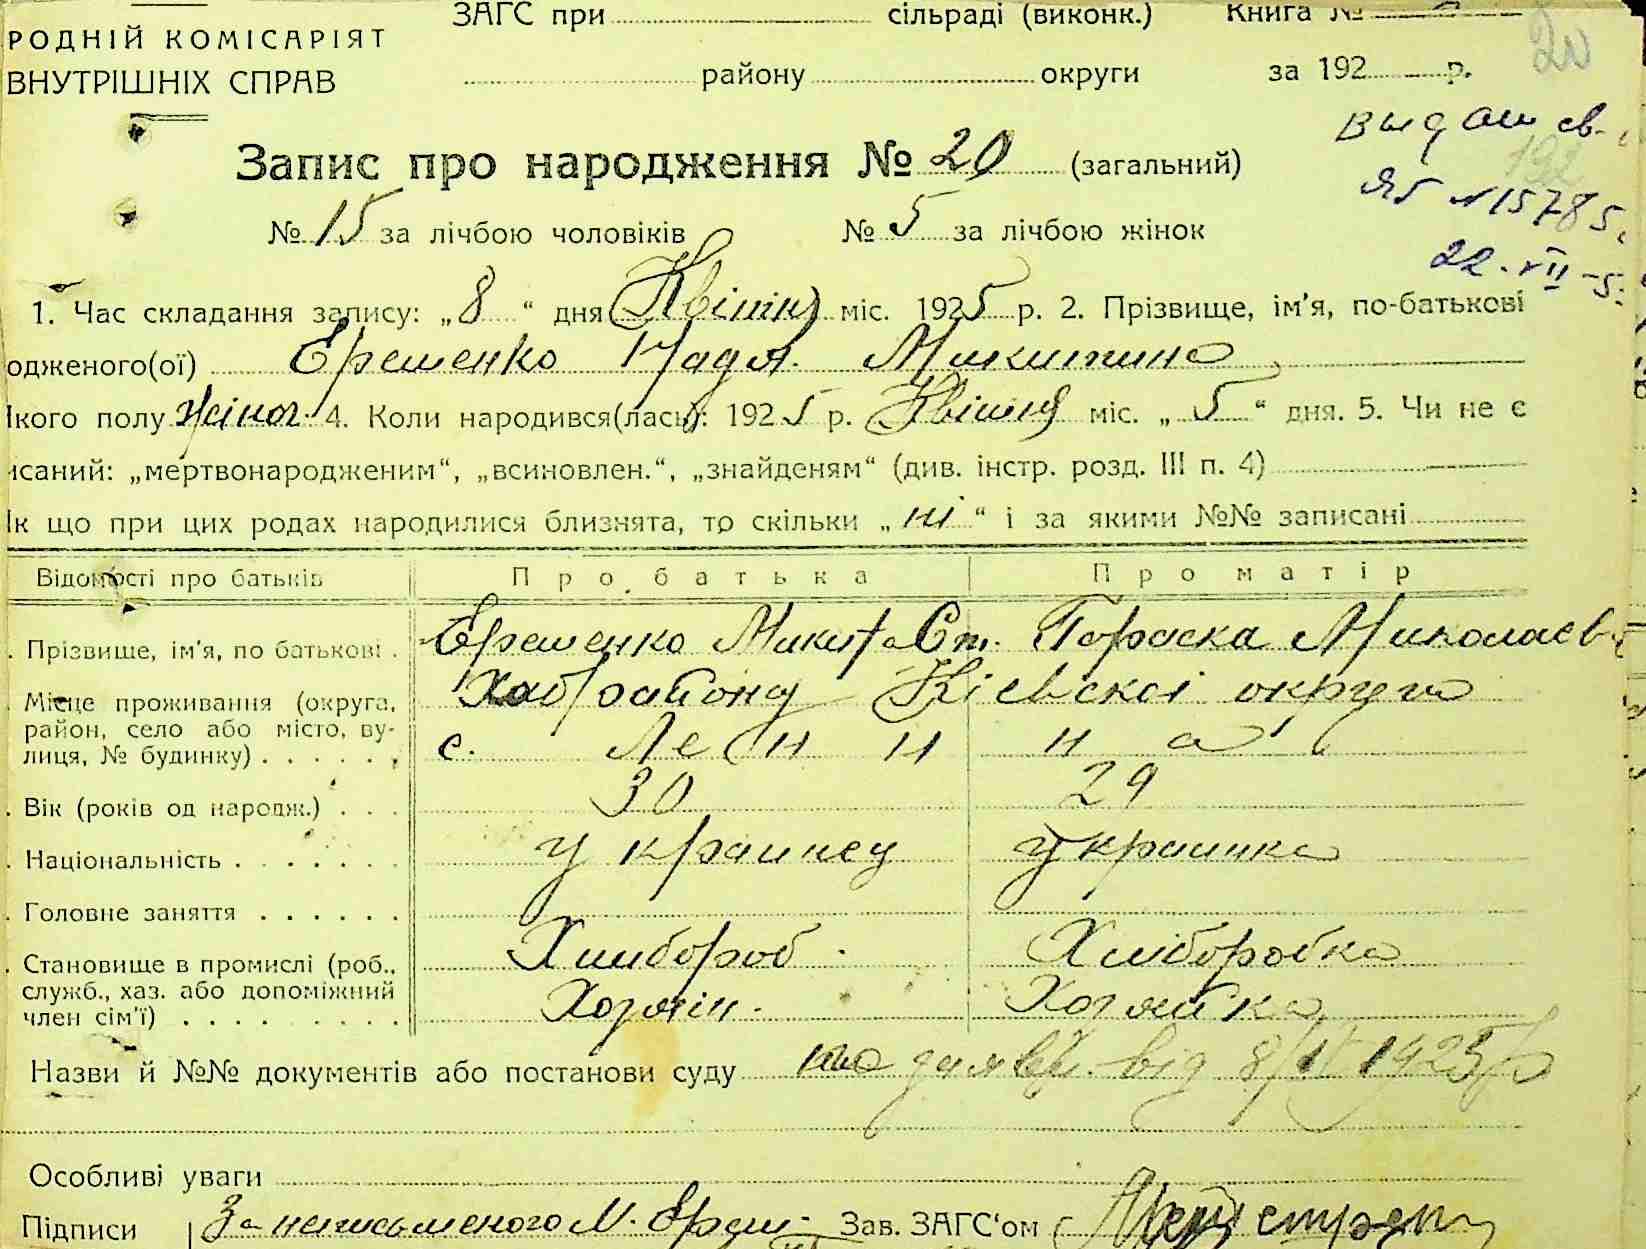 ЗАГС при сільраді (виконк.) Книга №
РОДНІЙ КОМІСАРІЯТ
ВНУТРІШНІХ СПРАВ
району округи за 192 р.
20
выдан св.
Запис про народження № 20 (загальний)
ЯБ № 15785
№ 15 за лічбою чоловіків № 5 за лічбою жінок
22. VII - 5
1. Час складання запису: „8“ дня Квітня міс. 1925 р. 2. Прізвище, ім'я, по-батькові
одженого(ої) Ерешенко Надя. Микитина
кого полу жіноч. 4. Коли народився(лась): 1925 р. Квітня міс. „5“ дня. 5. Чи не є
исаний: „мертвонародженим“, „всиновлен.“, „знайденям“ (див. інстр. розд. III п. 4)
к що при цих родах народилися близнята, то скільки „ні“ і за якими №№ записані
Відомості про батьків Про батька Про матір
. Прізвище, ім'я, по батькові . Ерешенко Микита Ст. Параска Миколаєв
. Місце проживання (округа, район, село або місто, вулиця, № будинку) . . . . . . Хаб района Київскої округи
с.
. Вік (років од народж.) . . . 30 29
. Національність . . . . . . . украинец украинка
. Головне заняття . . . . . .
Хлибороб Хліборобка
. Становище в промислі (роб., служб., хаз. або допоміжний член сім'ї) . . . . . . . . Хозяін. Хозяйка
Назви й №№ документів або постанови суду по заяві від 8/IV 1925 р
Особливі уваги
Підписи За неписьменого М. Ереш. Зав. ЗАГС'ом